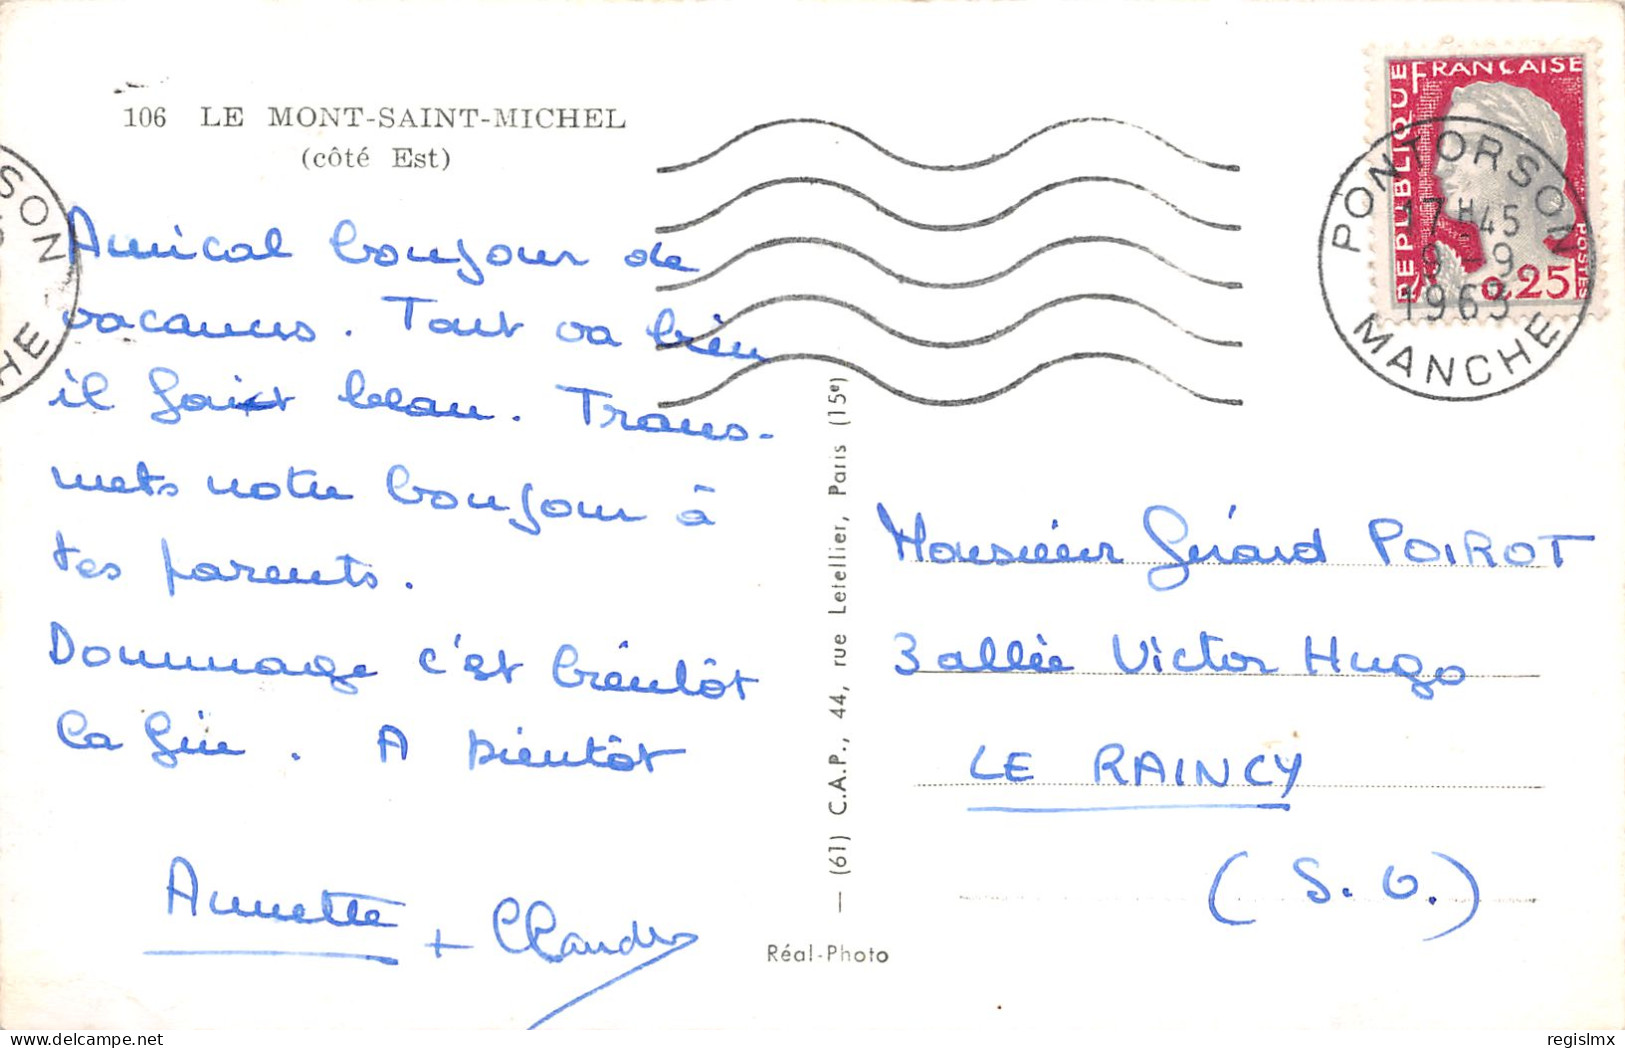 106 LE MONT-SAINT-MICHEL
(côté Est)
Amical bonjour de
vacances. Tout va bien
il fait beau. Trans-
mets notre bonjour à
tes parents.
Dommage c'est bientôt
la fin. A bientôt
Annette + Claude
(61) C.A.P., 44, rue Letellier, Paris (15e)
Réal-Photo
RÉPUBLIQUE FRANÇAISE
0,25
POSTES
PONTORSON
17H45
9-9
1963
MANCHE
SON
HE
Monsieur Gérard POIROT
3 allée Victor Hugo
LE RAINCY
(S. O.)
regislmx